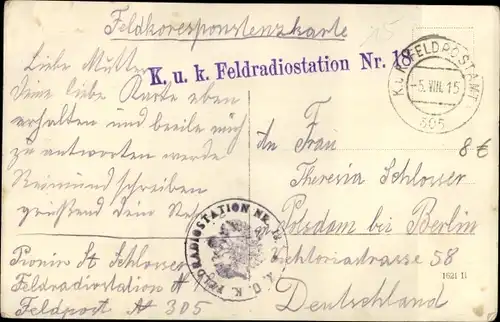 Feldkorespontenzkarte
K. u. k. Feldradiostation Nr. 18
K.u.K. FELDPOSTAMT
-5.VIII.15
305
8 €
Liebe Mutter
Deine liebe Karte eben
erhalten und beile mich
zu antworten werde
Reimund schreiben
grüßend Dein
Pionir St Schlosser
Feldradiostation
Feldpost № 305
An Frau
Theresia Schlosser
Potsdam bei Berlin
Viktoriastrasse 58
Deutschland
K. U. K. FELDRADIOSTATION NR. 18
1621 II